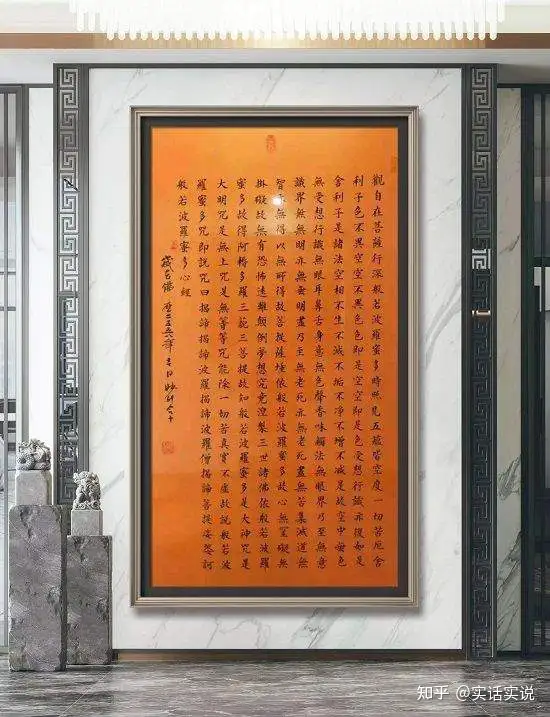 觀自在菩薩行深般若波羅蜜多時照見五蘊皆空度一切苦厄舍
利子色不異空空不異色色即是空空即是色受想行識亦復如是
舍利子是諸法空相不生不滅不垢不淨不增不減是故空中無色
無受想行識無眼耳鼻舌身意無色聲香味觸法無眼界乃至無意
識界無無明亦無無明盡乃至無老死亦無老死盡無苦集滅道無
智亦無得以無所得故菩提薩埵依般若波羅蜜多故心無罣礙無
掛礙故無有恐怖遠離顛倒夢想究竟涅槃三世諸佛依般若波羅
蜜多故得阿耨多羅三藐三菩提故知般若波羅蜜多是大神咒是
大明咒是無上咒是無等等咒能除一切苦真實不虛故說般若波
羅蜜多咒即說咒曰揭諦揭諦波羅揭諦波羅僧揭諦菩提娑婆訶
般若波羅蜜多心經
知乎 @实话实说